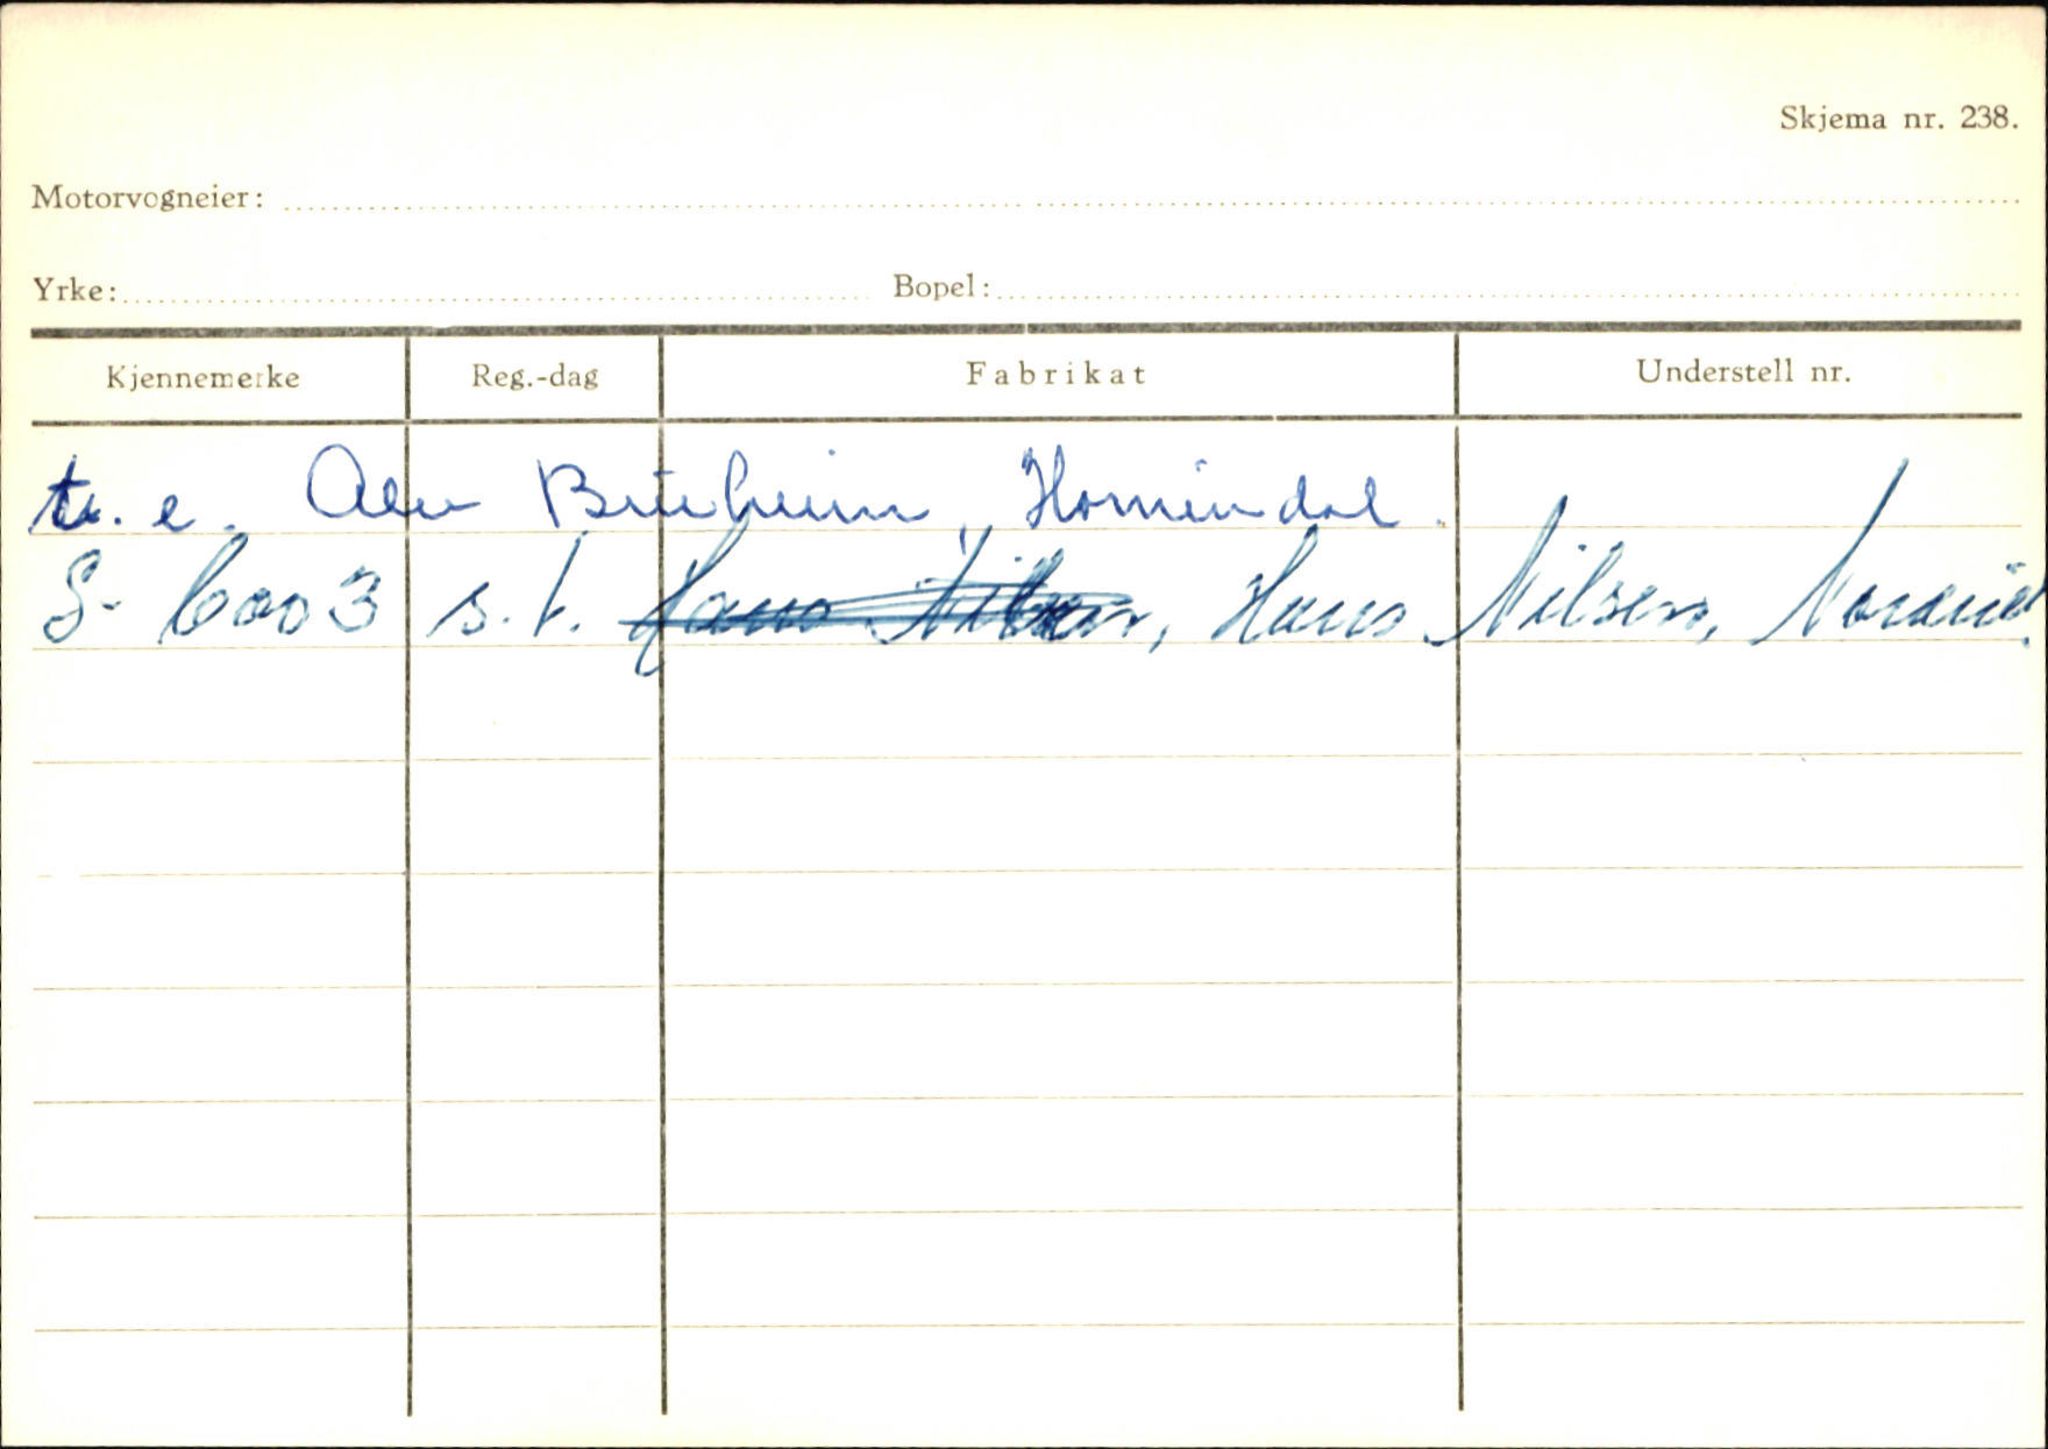 Skjema nr. 238.
Motorvogneier:
Yrke: Bopel:
Kjennemerke Reg.-dag Fabrikat Understell nr.
tr. e. Alv Hornindal.
S- 6003 s. t. Hans Nilsen, Hans Nilsen,